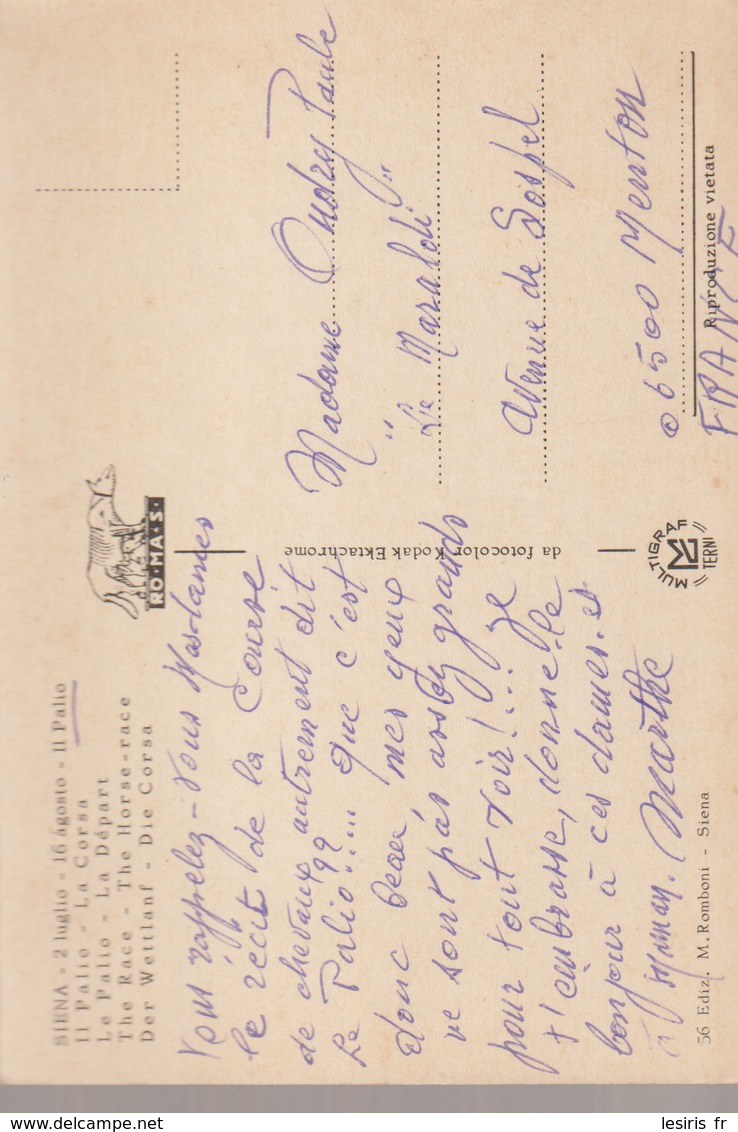 SIENA - 2 luglio - 16 agosto - Il Palio
Il Palio - La Corsa
Le Palio - La Départ
The Race - The Horse-race
Der Wettlanf - Die Corsa
RO·MA·S·
Vous rappelez-vous Mesdames
le récit de la Course
de chevaux autrement dit
Le Palio"?.... Que c'est
donc beau, mes yeux
ne sont pas assez grands
pour tout voir!... Je
t'embrasse, donne le
bonjour à ces dames et
à Maman. Marthe
56 Ediz. M. Romboni - Siena
da fotocolor Kodak Ektachrome
MULTIGRAF
TERNI
Madame Audry Paule
"Le Maraldi"
Avenue de Sospel
06500 Menton
FRANCE
Riproduzione vietata
lesiris fr
www.delcampe.net